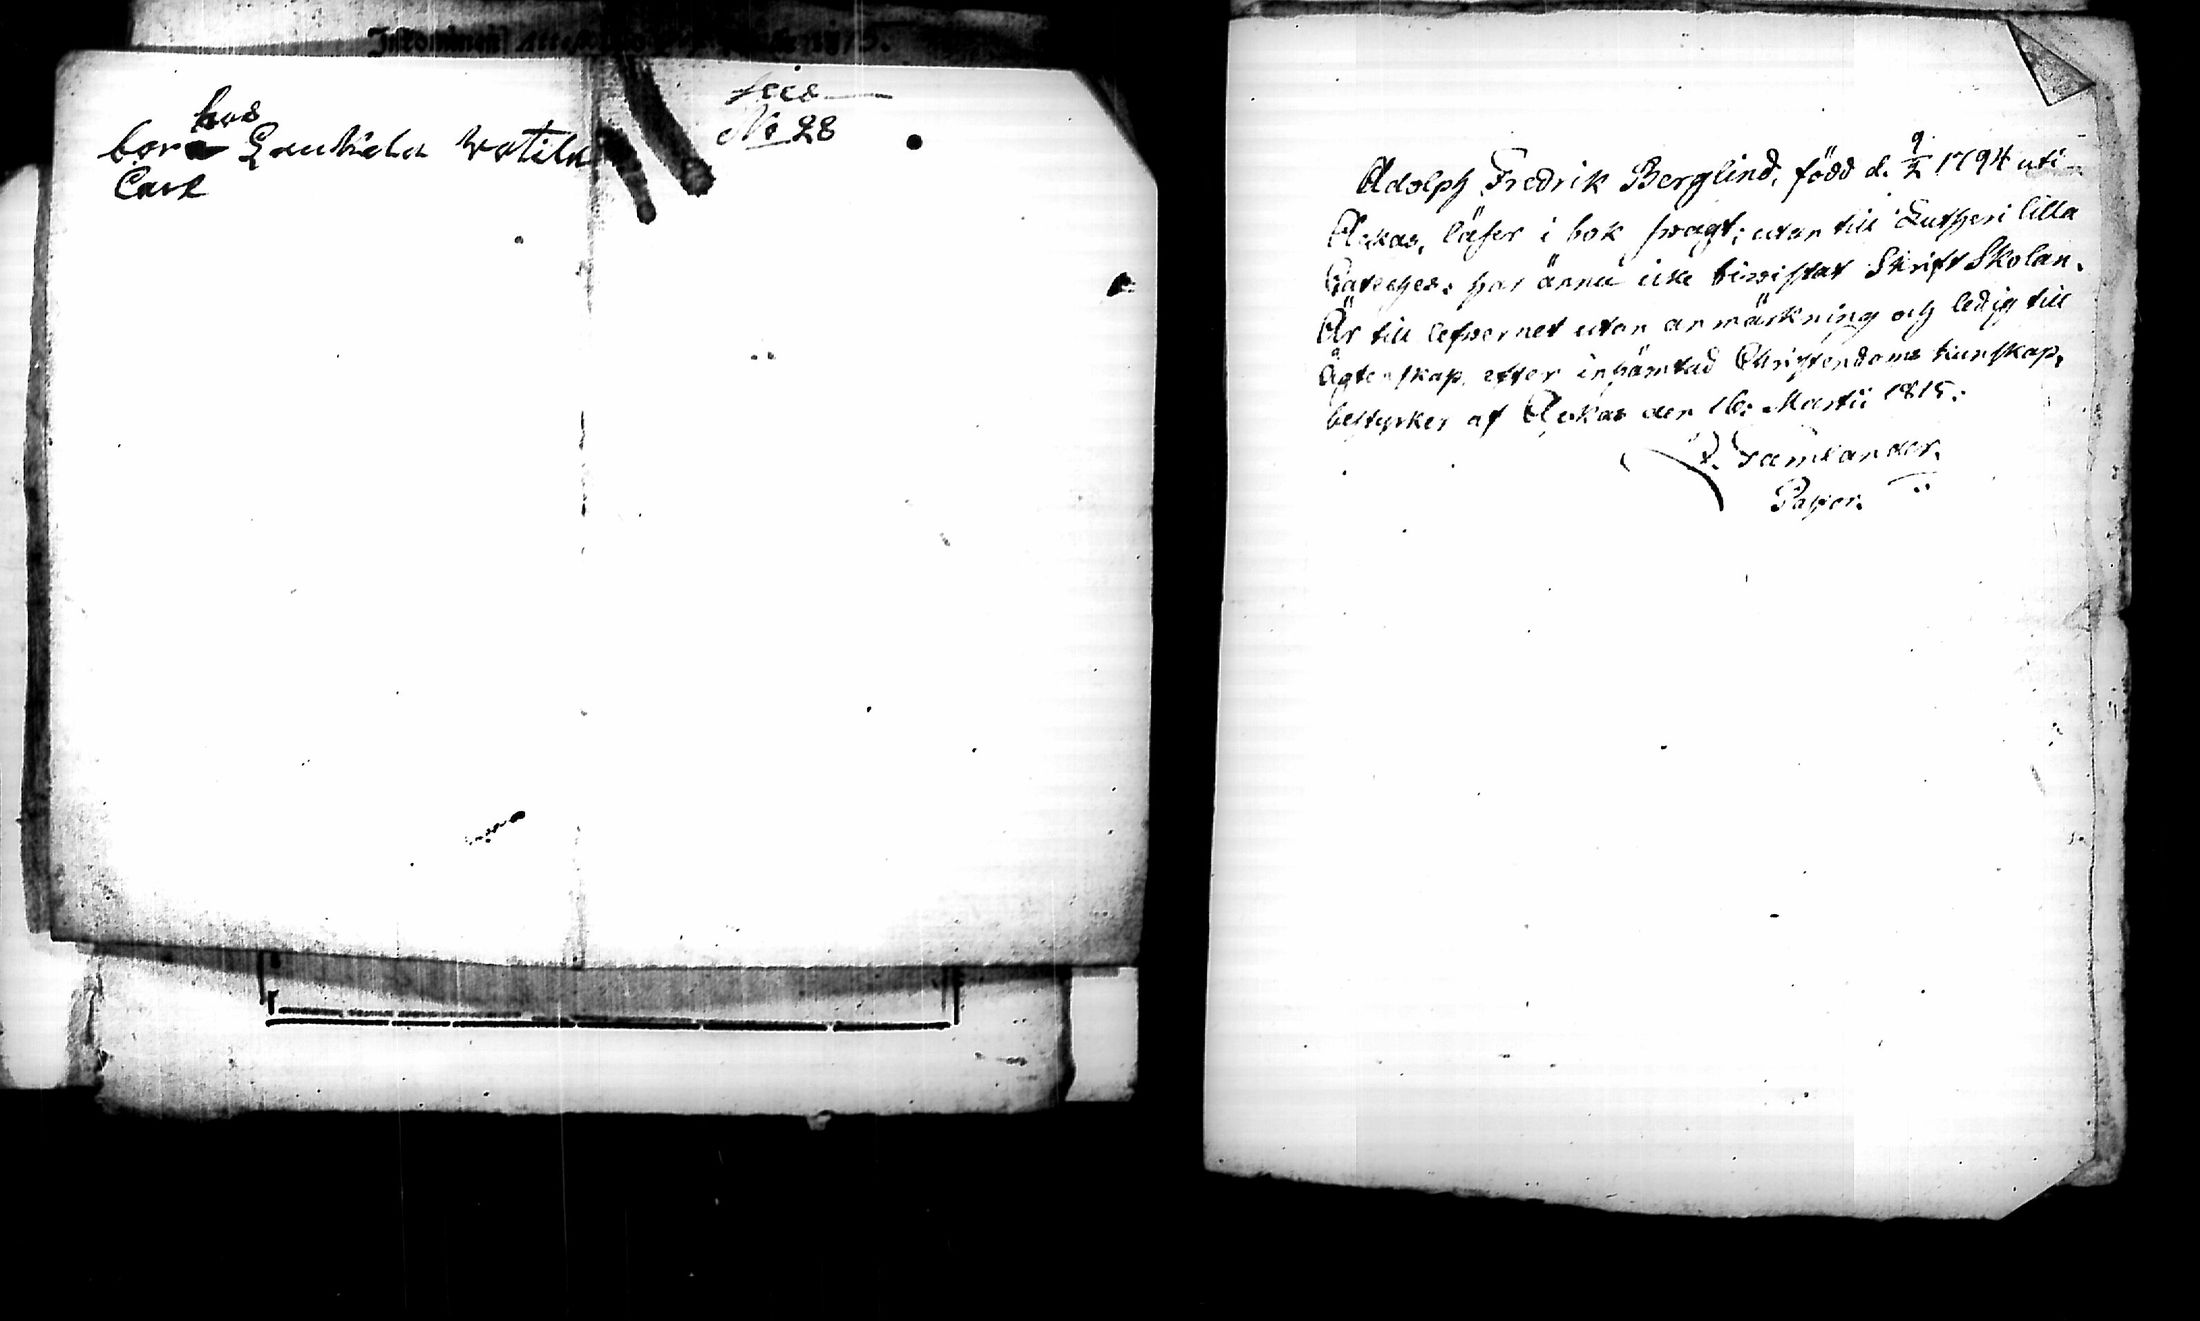 Inkomne Attester
hos
bor Laukela
Carl
No 28
Adolph Fredrik Berglind, född d. 9/2 1794 uti
Ackas, läser i bok swagt; utan till Lutheri lilla
Cateches. har ännu icke biwistat SkriftSkolan.
Är till lefwernet utan anmärkning och ledig till
ägtenskap, efter inhämtad Christendoms kunskap,
bestyrker af Ackas den 16: Martii 1815.
Pastor.